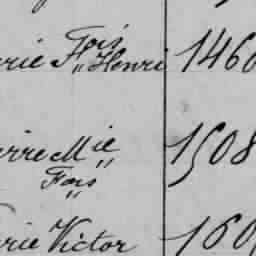 Fois
rie F. Henri 1460
erre Mie 1508
Fois
rie Victor 160